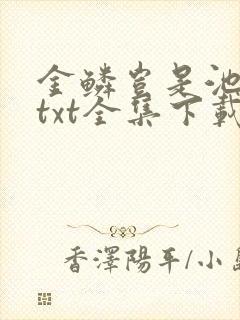 金鱗豈是池
txt全集下載
香澤陽平/小島